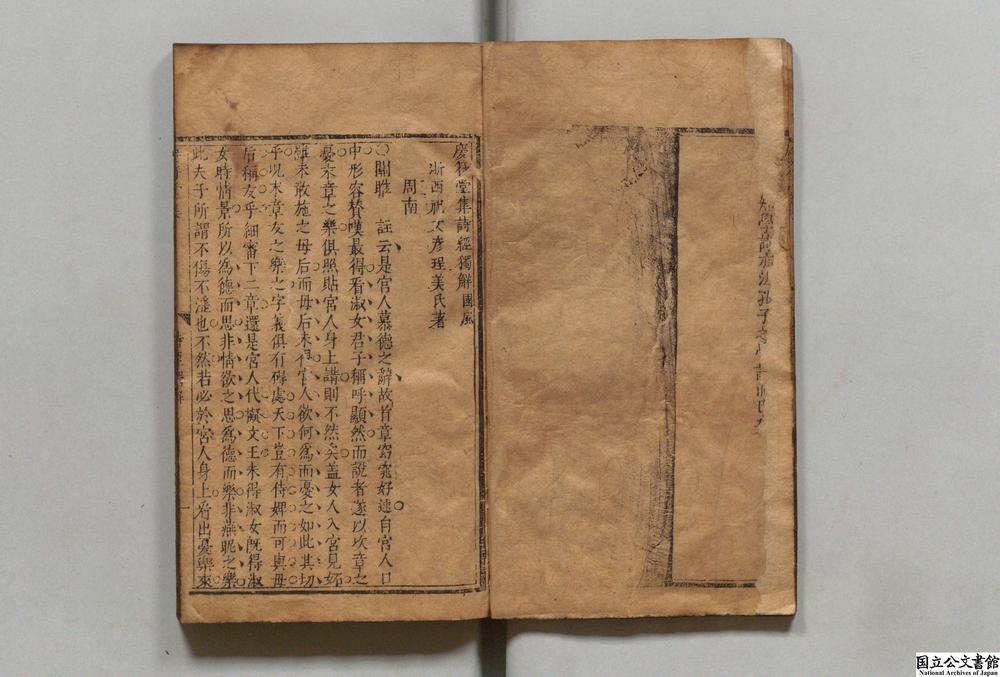 慶符堂集詩經獨解國風
浙西祝文彦珵美氏著
周南
○關雎 註云是宮人慕德之辭故首章窈窕好逑自宮人口
中形容賛嘆最得看淑女君子稱呼顯然而說者遂以次章之
憂卒章之樂俱照貼宮人身上講則不然矣盖女人入宮見妬
雖未敢施之母后而母后未 宮人欲何爲而憂之如此其切
乎以末章友之樂之字義俱有碍處天下豈有侍婢而可與母
后稱友乎細審下二章還是宮人代擬文王未得淑女旣得淑
女時情景所以爲德而思非情欲之思爲德而樂非燕昵之樂
此夫子所謂不傷不淫也不然若必於宮人身上看出憂樂來
一
国立公文書館
National Archives of Japan